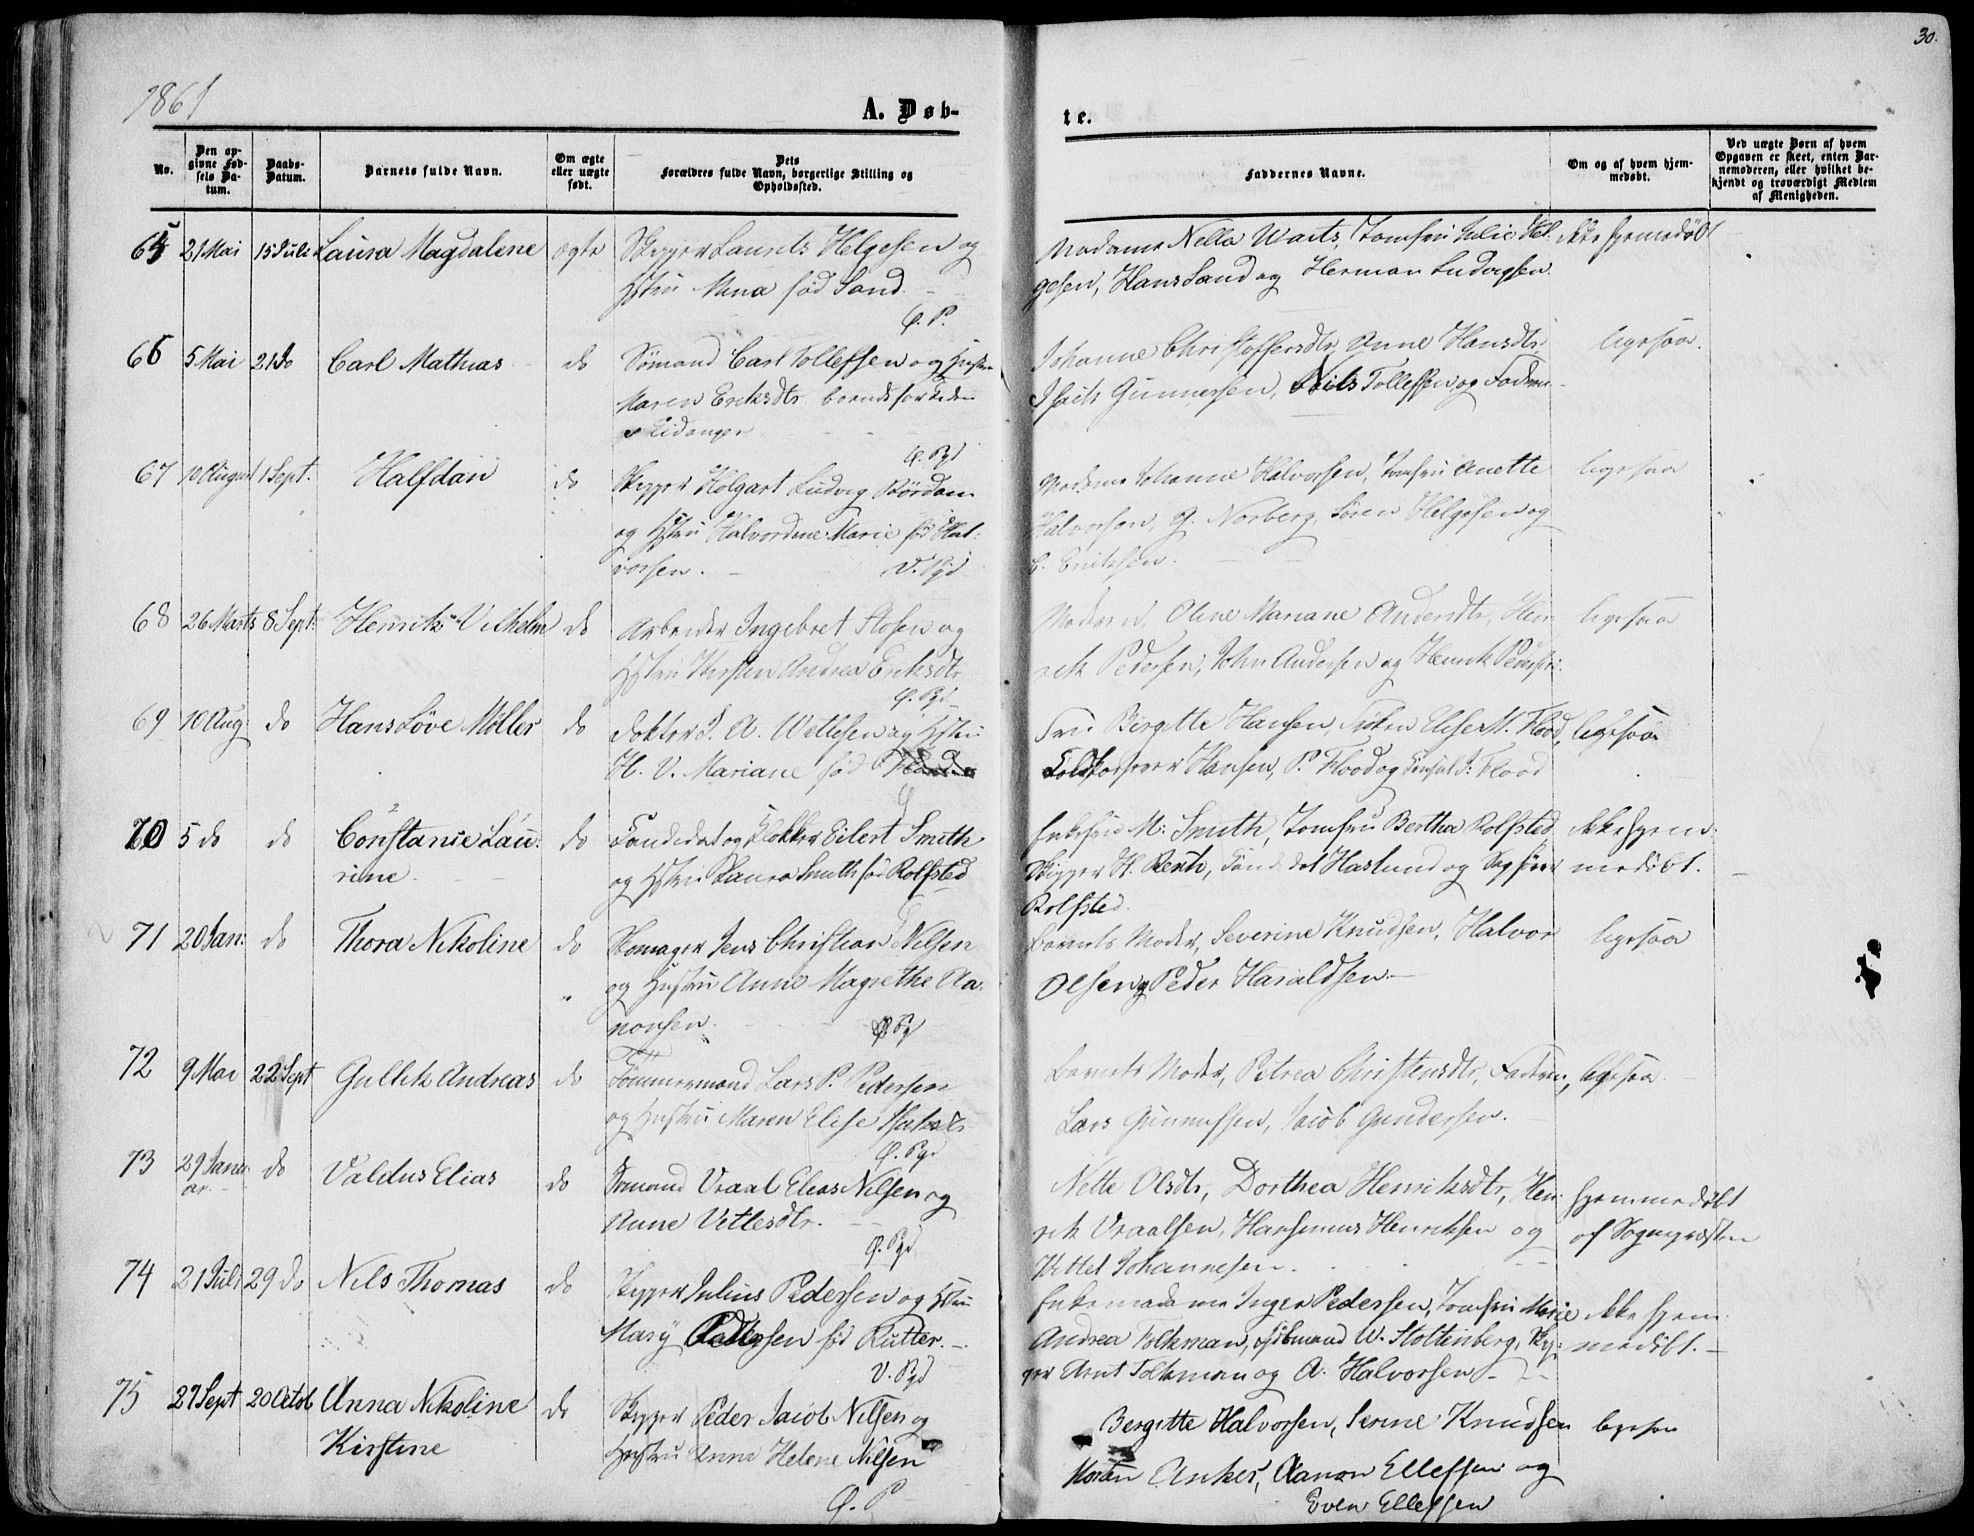 1861
A. Døb-
te.
30.
No.
Den op-
givne Fød-
sels Da-
tum.
Daabs-
Datum.
Barnets fulde Navn.
Om ægte
eller uægte
født.
Dets
Forældres fulde Navn, borgerlige Stilling og
Opholdssted.
Faddernes Navne.
Om og af hvem hjem-
medøbt.
Ved uægte Børn af hvem
Opgaven er skeet, enten Bar-
nemoderen, eller hvilket be-
kjendt og troværdigt Medlem
af Menigheden.
65 21 Mai 15 Juli Laura Magdalene ægte Skipper Laurits Helgesen og
Hstru Mina fød Sand.
Ø. P.
Madame Nella Waits, Jomfru Julie Hel-
gesen, Hans Sand og Herman Ludvigsen.
ikke hjemmedøbt
66 5 Mai 21 do Carl Mathias do Sømand Carl Tollefsen og Hustru
Maren Eriksdtr.
Eidanger
Ø. Pgd
Johanne Christoffersdtr, Anne Hansdtr
Gunnersen, Nils Tollefsen og Faderen
ligesaa.
67 10 August 1 Sept. Halfdan do Skipper Holgart Ludvig Rørdam
og Hstru Halvordine Marie fød Hal-
vorsen.
V. Pgd
Madame Johanne Halvorsen, Jomfru Anette
Halvorsen, G. Norberg, Søren Helgesen og
E. Eriksen.
ligesaa
68 26 Marts 8 Sept: Henrik Vilhelm do Arbeider Ingebret Olosen og
Hstru Kirsten Andrea Eriksdtr
Ø. Pgd
Moderen, Oline Mariane Andersdtr, Hen-
rik Pedersen, John Andersen og Henrik Pedersen.
ligesaa
69 10 Aug: do Hans Løve Møller do Doktor L. A. Wetlesen og Hstru
H. V. Mariane fød
Fru Birgitte Hansen, Frøken Elise M. Flood,
Hansen, P. Flood og Consul J. Flood
ligesaa
70 5 do do Constanse Lau-
rine.
do Candidat og Klokker Eilert Smith
og Hstru Laura Smith fød Rolfsted
Enkefru M: Smith, Jomfru Bertha Rolfsted
Skipper H. Resch, Candidat Haslund og Sagfører
Rolfsted.
ikke hjem-
medøbt.
71 20 Jan: do Thora Nikoline do Skomager Jens Christian Nilsen
og Hustru Anne Magrethe Aa-
nonsen.
Ø. Pgd
Barnets Moder, Severine Knudsen, Halvor
Olsen og Peder Haraldsen.
ligesaa
72 9 Mai 22 Sept Gullik Andreas do Tømmermand Lars P. Pedersen
og Hustru Maren Elise
Ø. Pgd
Barnets Moder, Petrea Christensdtr, Faderen,
Lars Gunnufsen, Jacob Gundersen.
ligesaa.
73 29 Janu-
ar.
do Valdus Elias do Sømand Vraal Elias Nilsen og
Anne Vetlesdtr.
Ø. Pgd
Nette Olsdtr, Dorthea Henriksdtr, Hen-
rik Vraalsen, Hansemus Henriksen og
Kittel Johannesen.
hjemmedøbt
af Sognepræsten
74 21 Juli 29 do Nils Thomas do Skipper Julius Pedersen og Hstru
Mary Pedersen fød Rutter.
V. Pgd
Enkemadame Inger Pedersen, Jomfru Marie
Andrea Folkman, Kjøbmand W. Stoltenberg, Skip-
per Arnt Folkman og A. Halvorsen
ikke hjem-
medøbt.
75 27 Sept 20 Octob Anna Nikoline
Kirstine
do Skipper Peder Jacob Nilsen og
Hustru Anna Helene Nilsen
Ø. P
Bergitte Halvorsen, Serine Knudsen
Morten Anker, Aanon Ellefsen og
Even Ellefsen
ligesaa